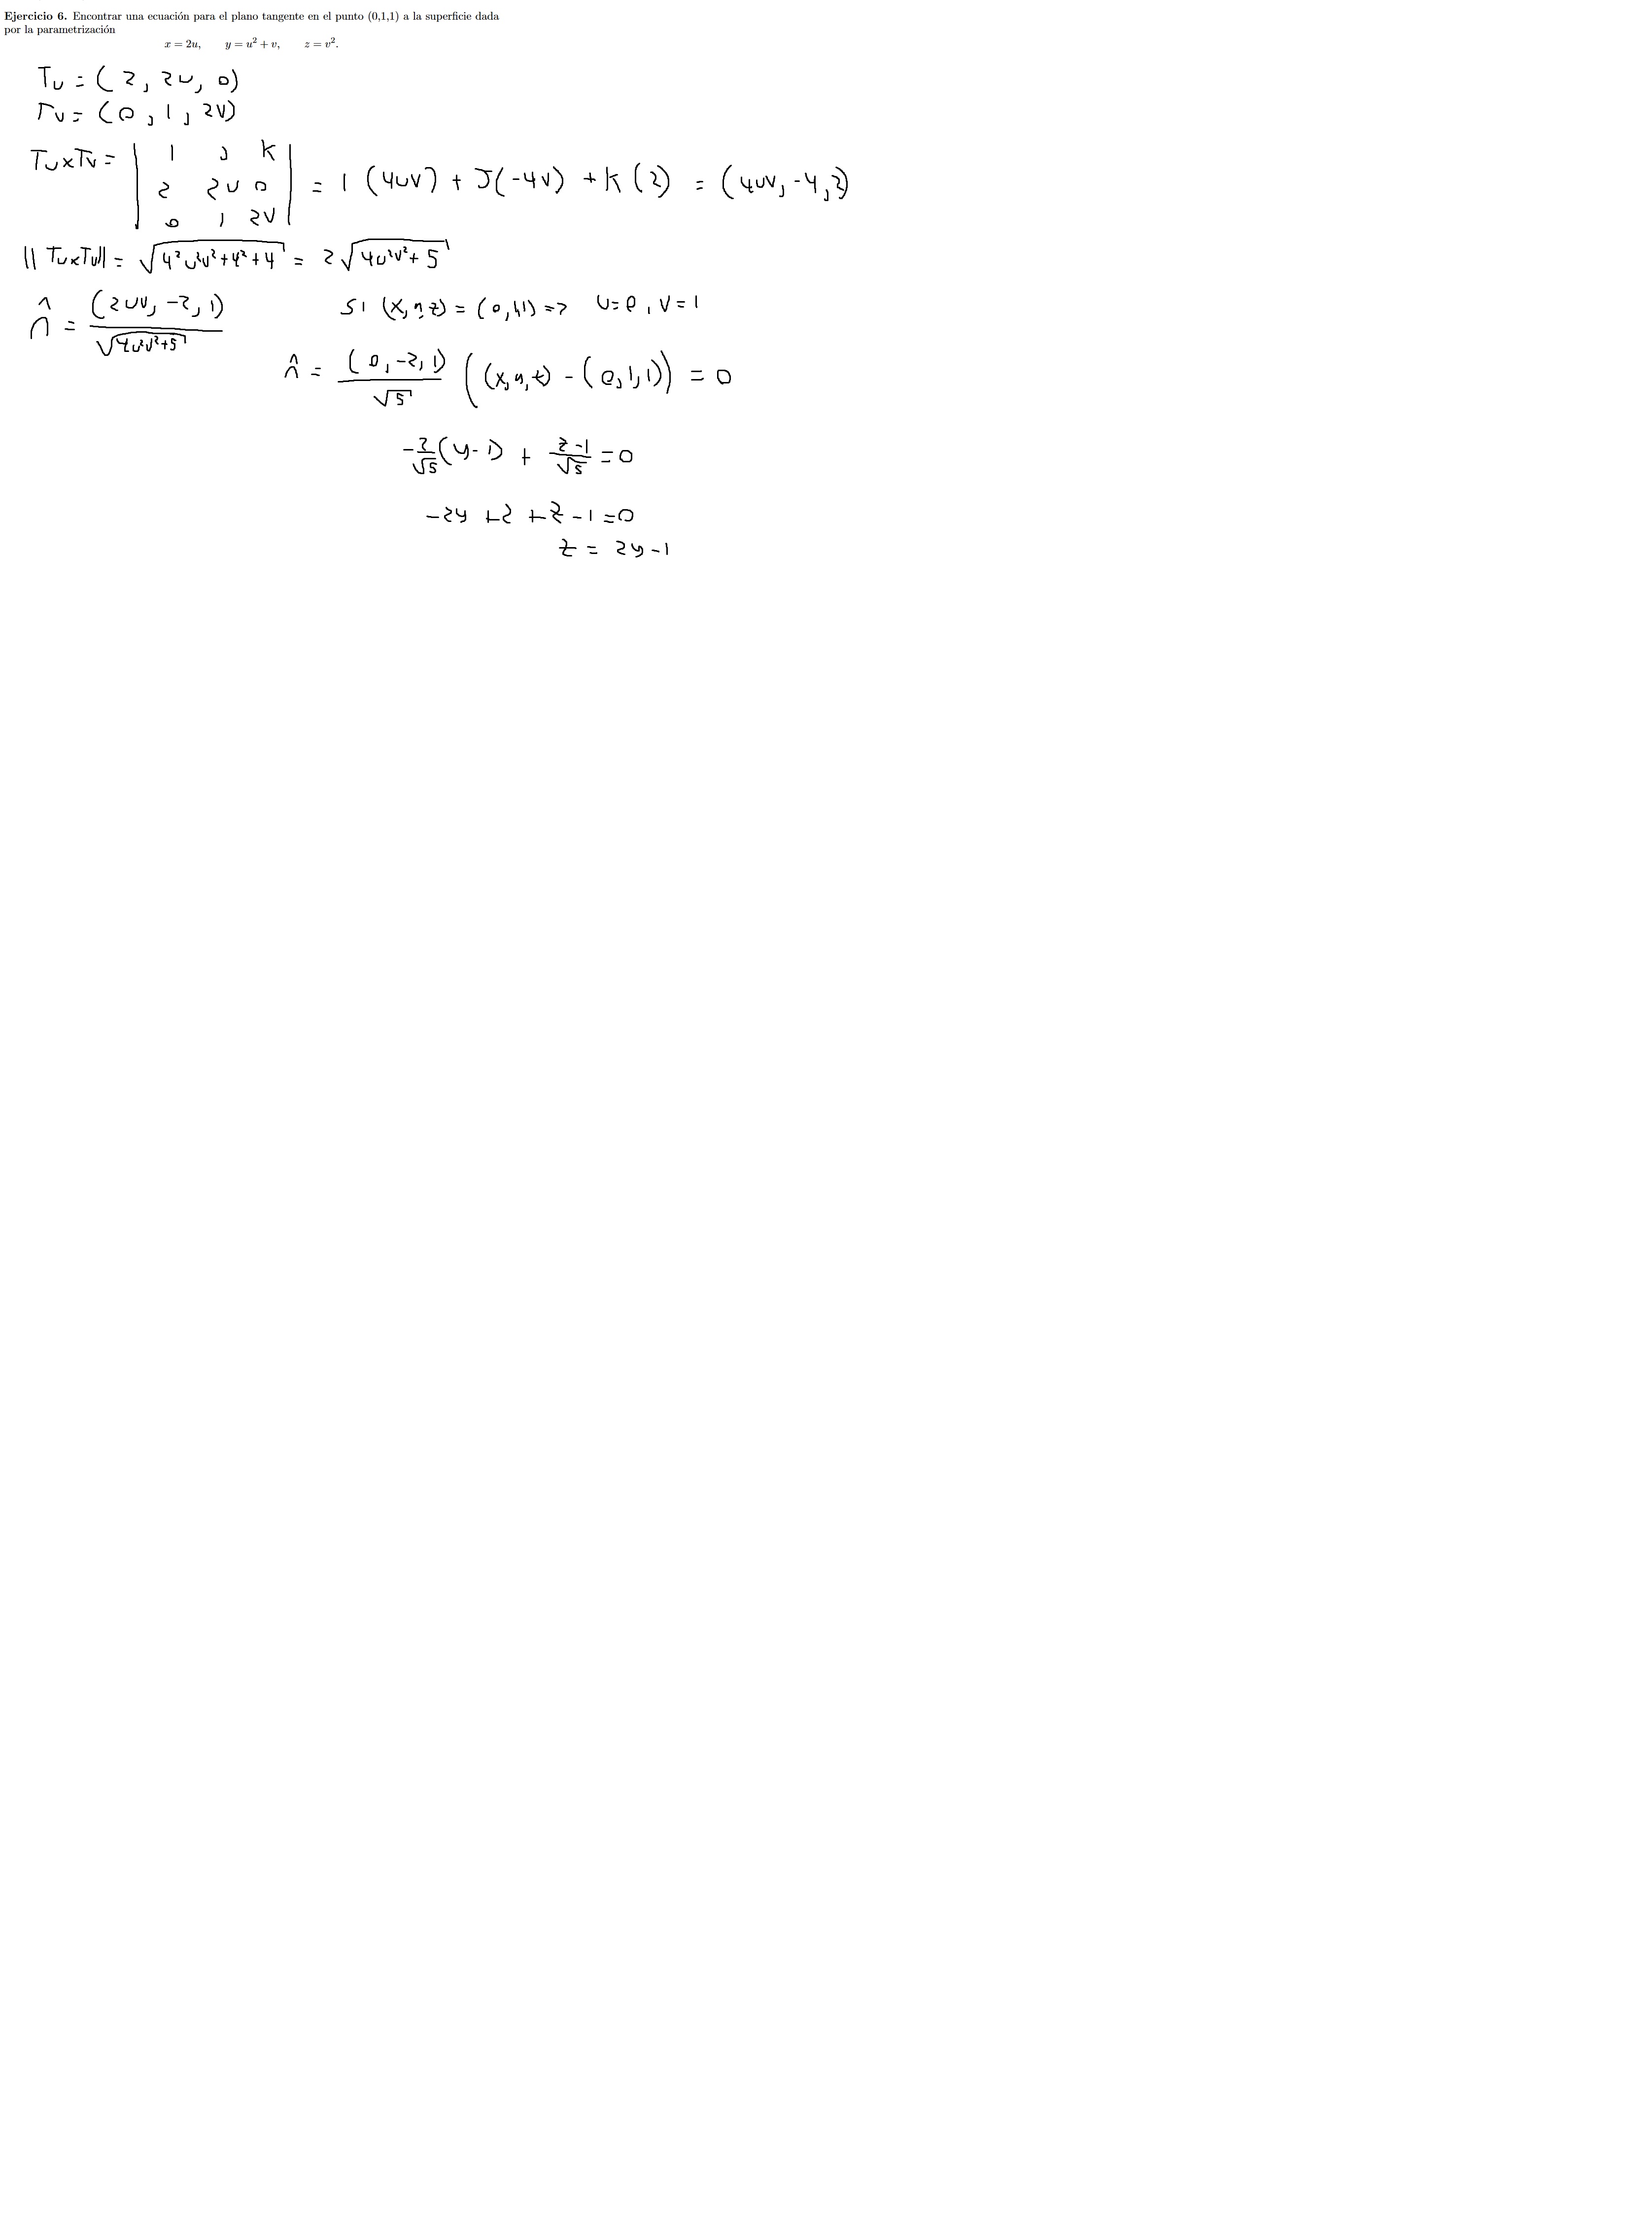 Ejercicio 6. Encontrar una ecuación para el plano tangente en el punto (0,1,1) a la superficie dada
por la parametrización
x = 2u, y = u² + v, z = v².
Tu = (2, 2u, 0)
Tv = (0, 1, 2v)
Tu×Tv = | I J K | = I (4uv) + J(-4v) + K (2) = (4uv, -4, 2)
2 2u 0
0 1 2v
||Tu×Tv|| = √(4²u²v²+4²+4) = 2√(4u²v²+5)
n̂ = (2uv, -2, 1) / √(4u²v²+5)
SI (x,y,z) = (0,1,1) => u=0, v=1
n̂ = (0, -2, 1) / √5 ((x,y,z) - (0,1,1)) = 0
-2/√5 (y-1) + (z-1)/√5 = 0
-2y + 2 + z - 1 = 0
z = 2y - 1